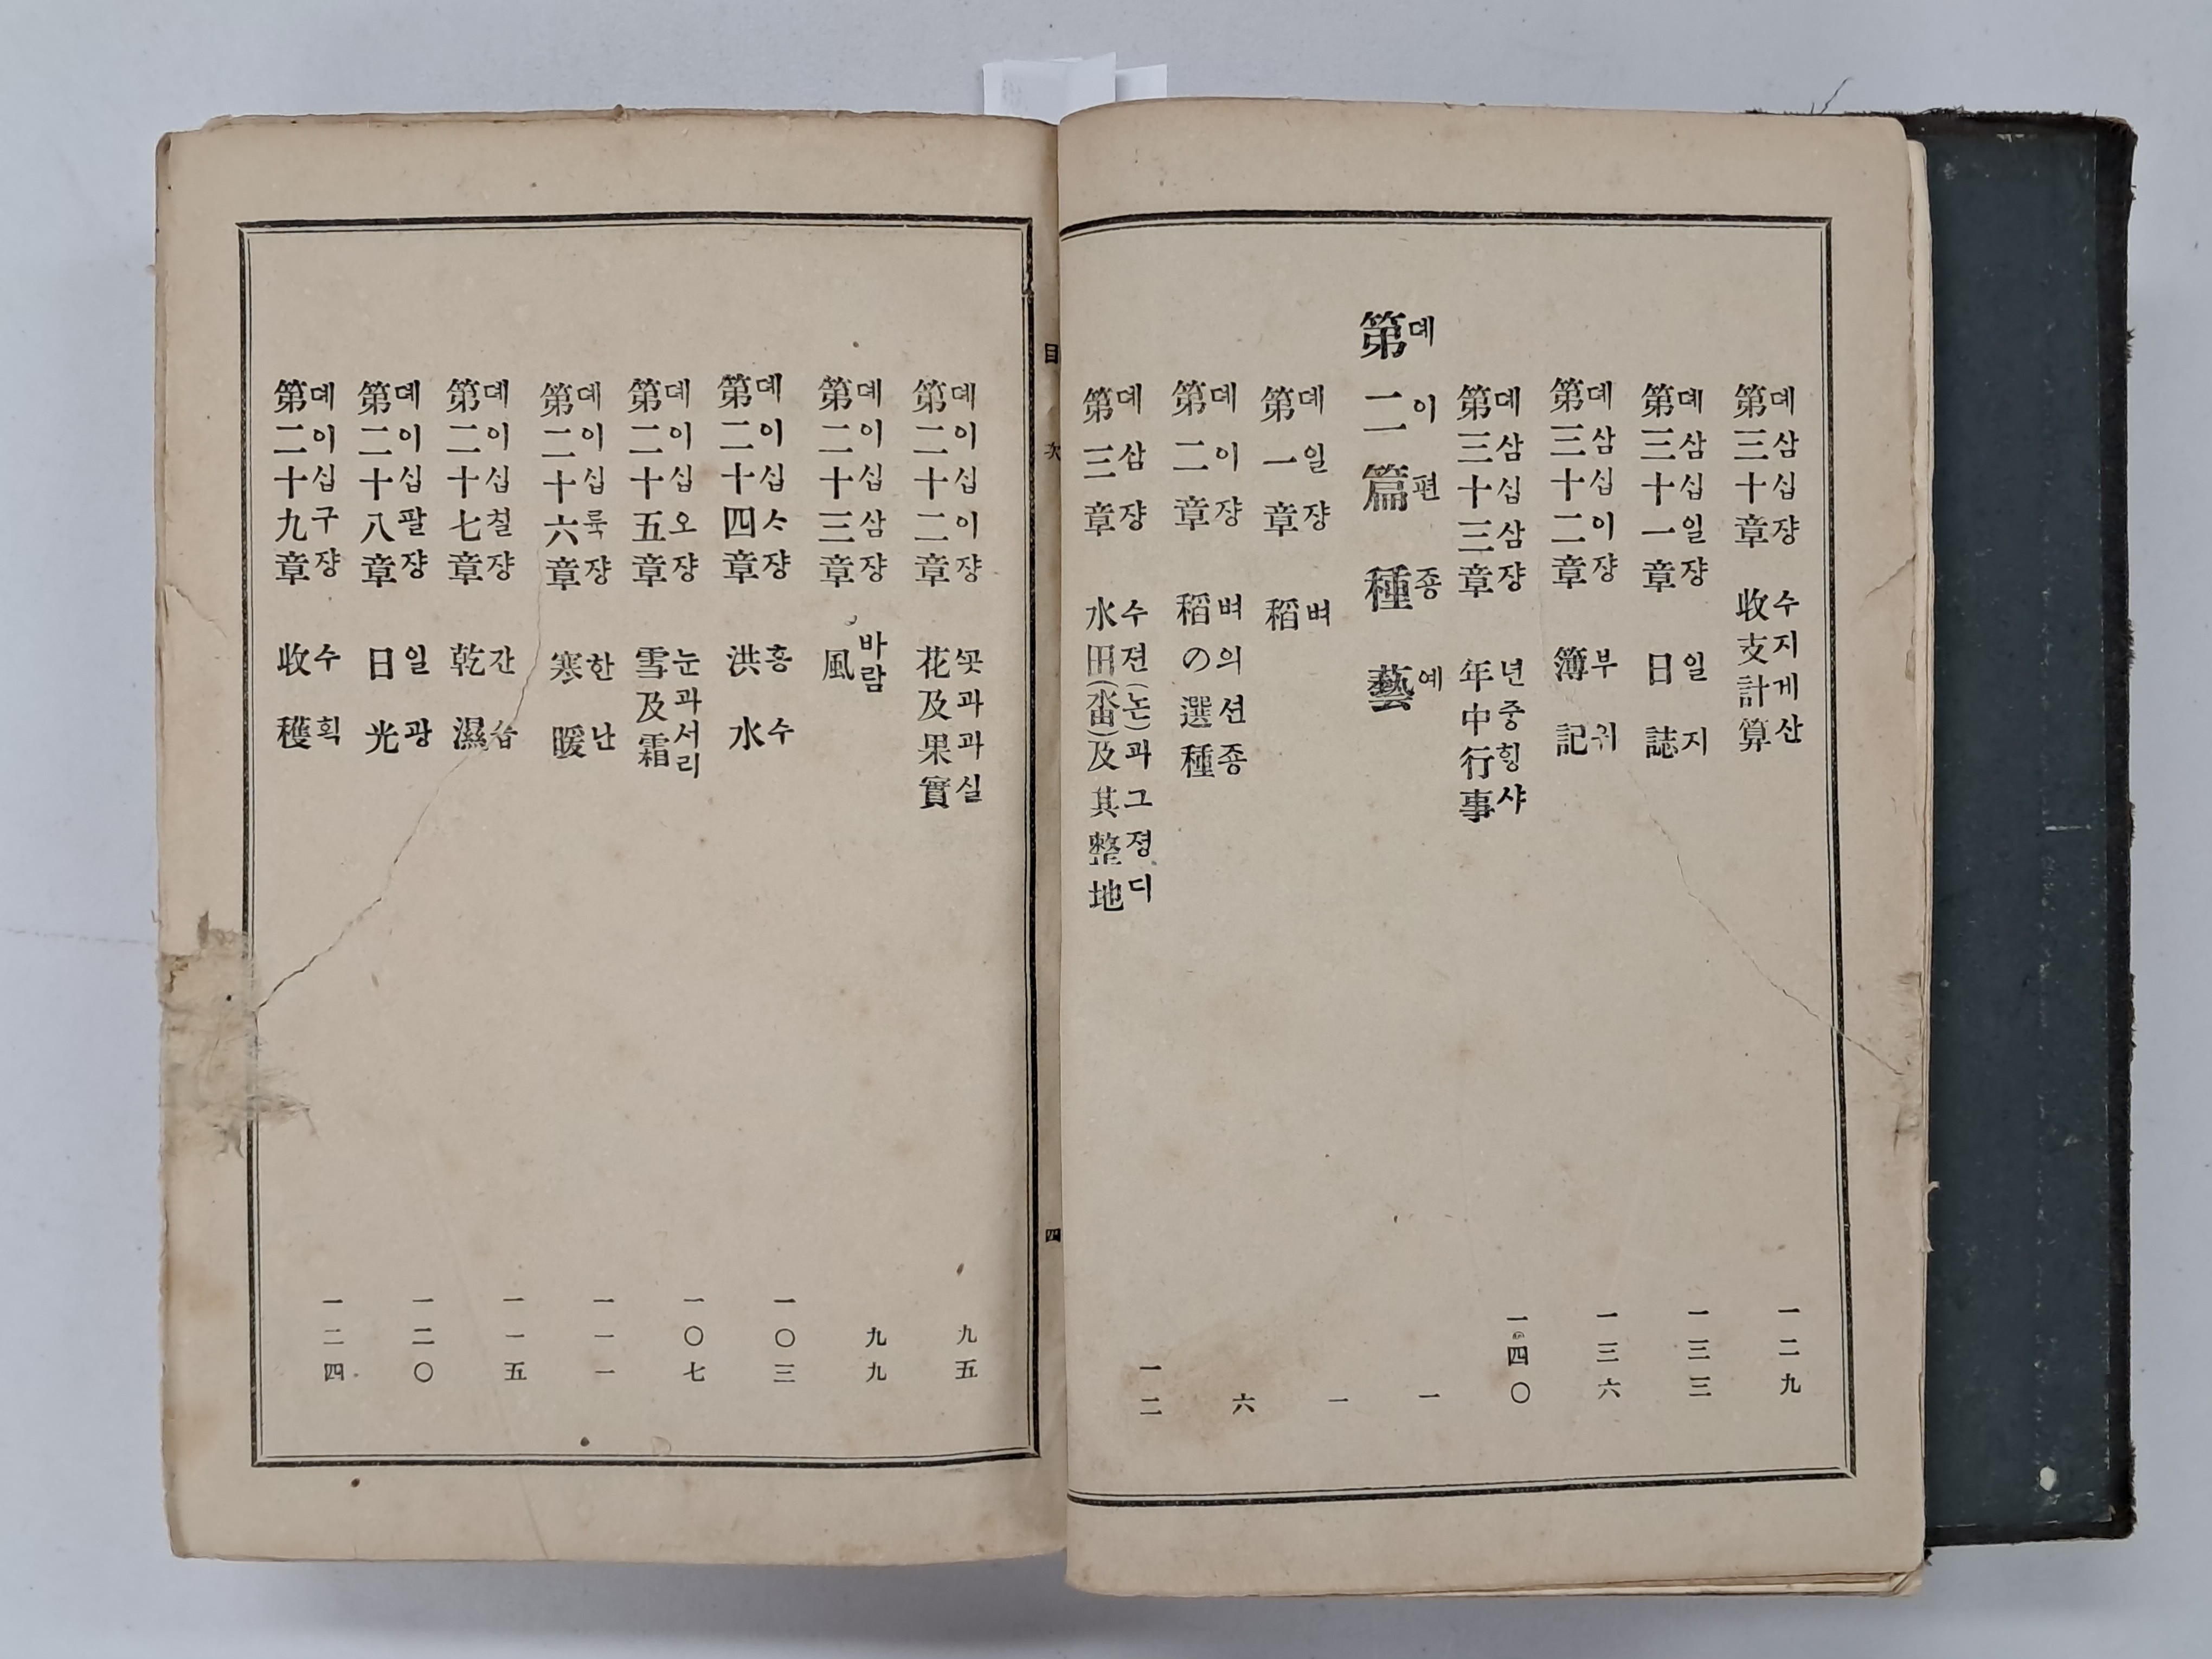 뎨삼십쟝 수지게산
第三十章 收支計算 一二九
뎨삼십일쟝 일지
第三十一章 日誌 一三三
뎨삼십이쟝 부긔
第三十二章 簿記 一三六
뎨삼십삼쟝 년중힝샤
第三十三章 年中行事 一四〇
뎨이편 죵예
第二篇 種藝 一
뎨일쟝 벼
第一章 稻 一
뎨이쟝 벼의션죵
第二章 稻の選種 六
뎨삼쟝 수젼(논)과그졍디
第三章 水田(畓)及其整地 一二
目次 四
뎨이십이쟝 ᄭᅩᆺ과과실
第二十二章 花及果實 九五
뎨이십삼쟝 바람
第二十三章 風 九九
뎨이십ᄉ쟝 홍수
第二十四章 洪水 一〇三
뎨이십오쟝 눈과서리
第二十五章 雪及霜 一〇七
뎨이십륙쟝 한난
第二十六章 寒暖 一一一
뎨이십칠쟝 간습
第二十七章 乾濕 一一五
뎨이십팔쟝 일광
第二十八章 日光 一二〇
뎨이십구쟝 수확
第二十九章 收穫 一二四